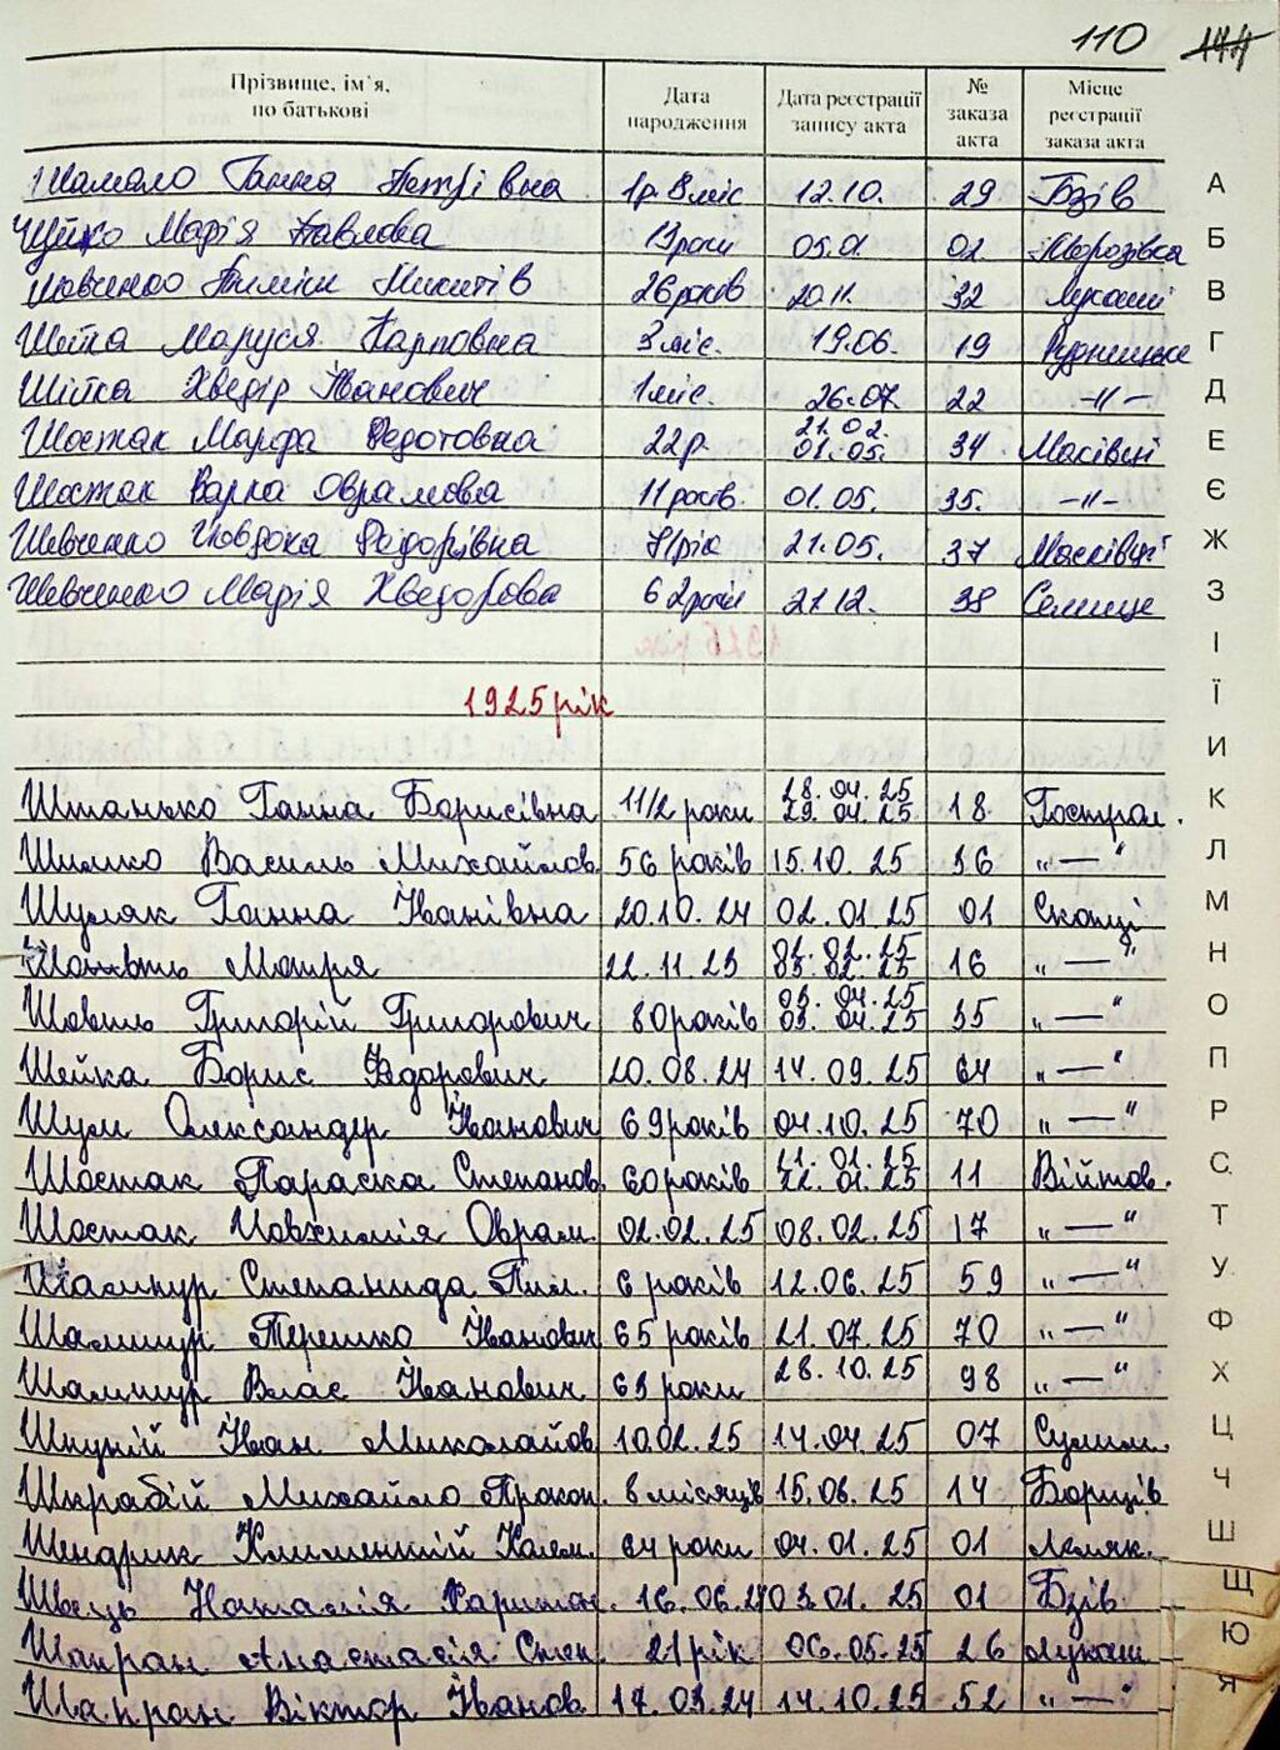 110 144
Прізвище, ім'я, по батькові Дата народження Дата реєстрації запису акта № заказа акта Місце реєстрації заказа акта
Шамало Ганна Петрівна 1р. 8міс 12.10. 29 Бзів А
Марія Павлова роки 05.01. 02 Морозівка Б
Шевченко Микитів 26 років 20.11. 32 Лукаші В
Шейка Маруся Карповна 3 міс. 19.06. 19 Рудницьке Г
Шійка Хведір Іванович 1 міс. 26.07. 22 -"- Д
Шостак Марфа Федотовна 22р. 21.02. 01.05. 34 Масівці Е
Шостак Варка Оврамова 11 років 01.05. 35. -"- Є
Шевченко Федорівна рік 21.05. 37 Масківці Ж
Шевченко Марія Хведорова 62 роки 21.12. 38 Селище З
І
1925 рік Ї
И
Штанько Ганна Борисівна 11/2 роки 28.04.25 29.04.25 18 Гострол. К
Шимко Василь Михайлов. 56 років 15.10.25 36 „—“ Л
Шуляк Ганна Іванівна 20.10.24 02.01.25 01 Скопці М
Мотря 22.11.23 02.25 16 „—“ Н
Шовть Григорій Григорович 80 років 03.04.25 03.04.25 35 „—“ О
Шейка Борис Федорович 20.08.24 14.09.25 64 „—“ П
Шум Олександр Іванович 69 років 04.10.25 70 „—“ Р
Шостак Параска Степанов. 60 років 21.01.25 22.01.25 11 Війтов. С
Шостак Йовхимія Оврам. 02.02.25 08.02.25 17 „—“ Т
Шампур Степанида Пил. 6 років 12.06.25 59 „—“ У
Шампур Терешко Іванович 65 років 21.07.25 70 „—“ Ф
Шампур Влас Іванович 63 роки 28.10.25 98 „—“ Х
Шкупій Іван Миколайов 10.02.25 14.04.25 07 Сулим. Ц
Шкрабій Михайло Прокоп. 8 місяців 15.06.25 14 Борщів Ч
Шендрик Климентій Калем. 64 роки 04.01.25 01 Леляк. Ш
Швець Наталія Харитон. 16.06.24 03.01.25 01 Бзів Щ
Шапран Анастасія Степ. 21 рік 06.05.25 26 Лукаш. Ю
Шапран Віктор Іванов. 17.03.24 14.10.25 52 „—“ Я